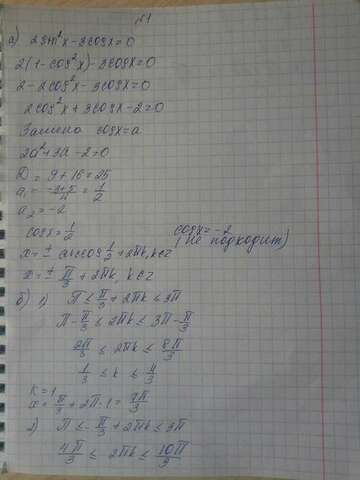 №1
а) 2sin²x-3cosx=0
2(1-cos²x)-3cosx=0
2-2cos²x-3cosx=0
2cos²x+3cosx-2=0
Замена cosx=a
2a²+3a-2=0
D=9+16=25
a₁=(-3+5)/4=1/2
a₂=-2
cosx=1/2 cosx=-2 (не подходит)
x=±arccos 1/2+2πk, k∈z
x=±π/3+2πk, k∈z
б) 1) π≤π/3+2πk≤3π
π-π/3≤2πk≤3π-π/3
2π/3≤2πk≤8π/3
1/3≤k≤4/3
k=1
x=π/3+2π·1=7π/3
2) π≤-π/3+2πk≤3π
4π/3≤2πk≤10π/3